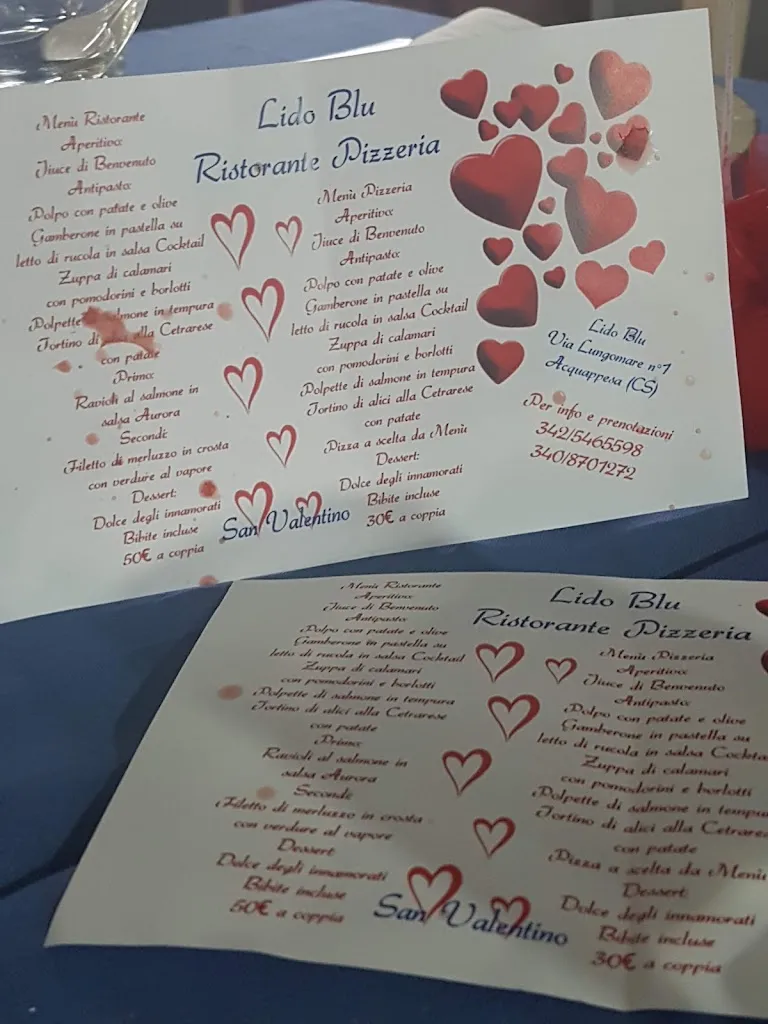 Lido Blu
Ristorante Pizzeria
Menù Ristorante
Aperitivo:
Jiuce di Benvenuto
Antipasto:
Polpo con patate e olive
Gamberone in pastella su
letto di rucola in salsa Cocktail
Zuppa di calamari
con pomodorini e borlotti
Polpette salmone in tempura
Tortino di alici alla Cetrarese
con patate
Primo:
Ravioli al salmone in
salsa Aurora
Secondi:
Filetto di merluzzo in crosta
con verdure al vapore
Dessert:
Dolce degli innamorati
Bibite incluse
50€ a coppia
Menù Pizzeria
Aperitivo:
Jiuce di Benvenuto
Antipasto:
Polpo con patate e olive
Gamberone in pastella su
letto di rucola in salsa Cocktail
Zuppa di calamari
con pomodorini e borlotti
Polpette di salmone in tempura
Tortino di alici alla Cetrarese
con patate
Pizza a scelta da Menù
Dessert:
Dolce degli innamorati
Bibite incluse
30€ a coppia
San Valentino
Lido Blu
Via Lungomare n°1
Acquappesa (CS)
Per info e prenotazioni
342/5465598
340/8701272
Lido Blu
Ristorante Pizzeria
Menù Ristorante
Aperitivo:
Jiuce di Benvenuto
Antipasto:
Polpo con patate e olive
Gamberone in pastella su
letto di rucola in salsa Cocktail
Zuppa di calamari
con pomodorini e borlotti
Polpette di salmone in tempura
Tortino di alici alla Cetrarese
con patate
Primo:
Ravioli al salmone in
salsa Aurora
Secondi:
Filetto di merluzzo in crosta
con verdure al vapore
Dessert:
Dolce degli innamorati
Bibite incluse
50€ a coppia
Menù Pizzeria
Aperitivo:
Jiuce di Benvenuto
Antipasto:
Polpo con patate e olive
Gamberone in pastella su
letto di rucola in salsa Cockta
Zuppa di calamari
con pomodorini e borlotti
Polpette di salmone in tempu
Tortino di alici alla Cetrares
con patate
Pizza a scelta da Menù
Dessert:
Dolce degli innamorati
Bibite incluse
30€ a coppia
San Valentino